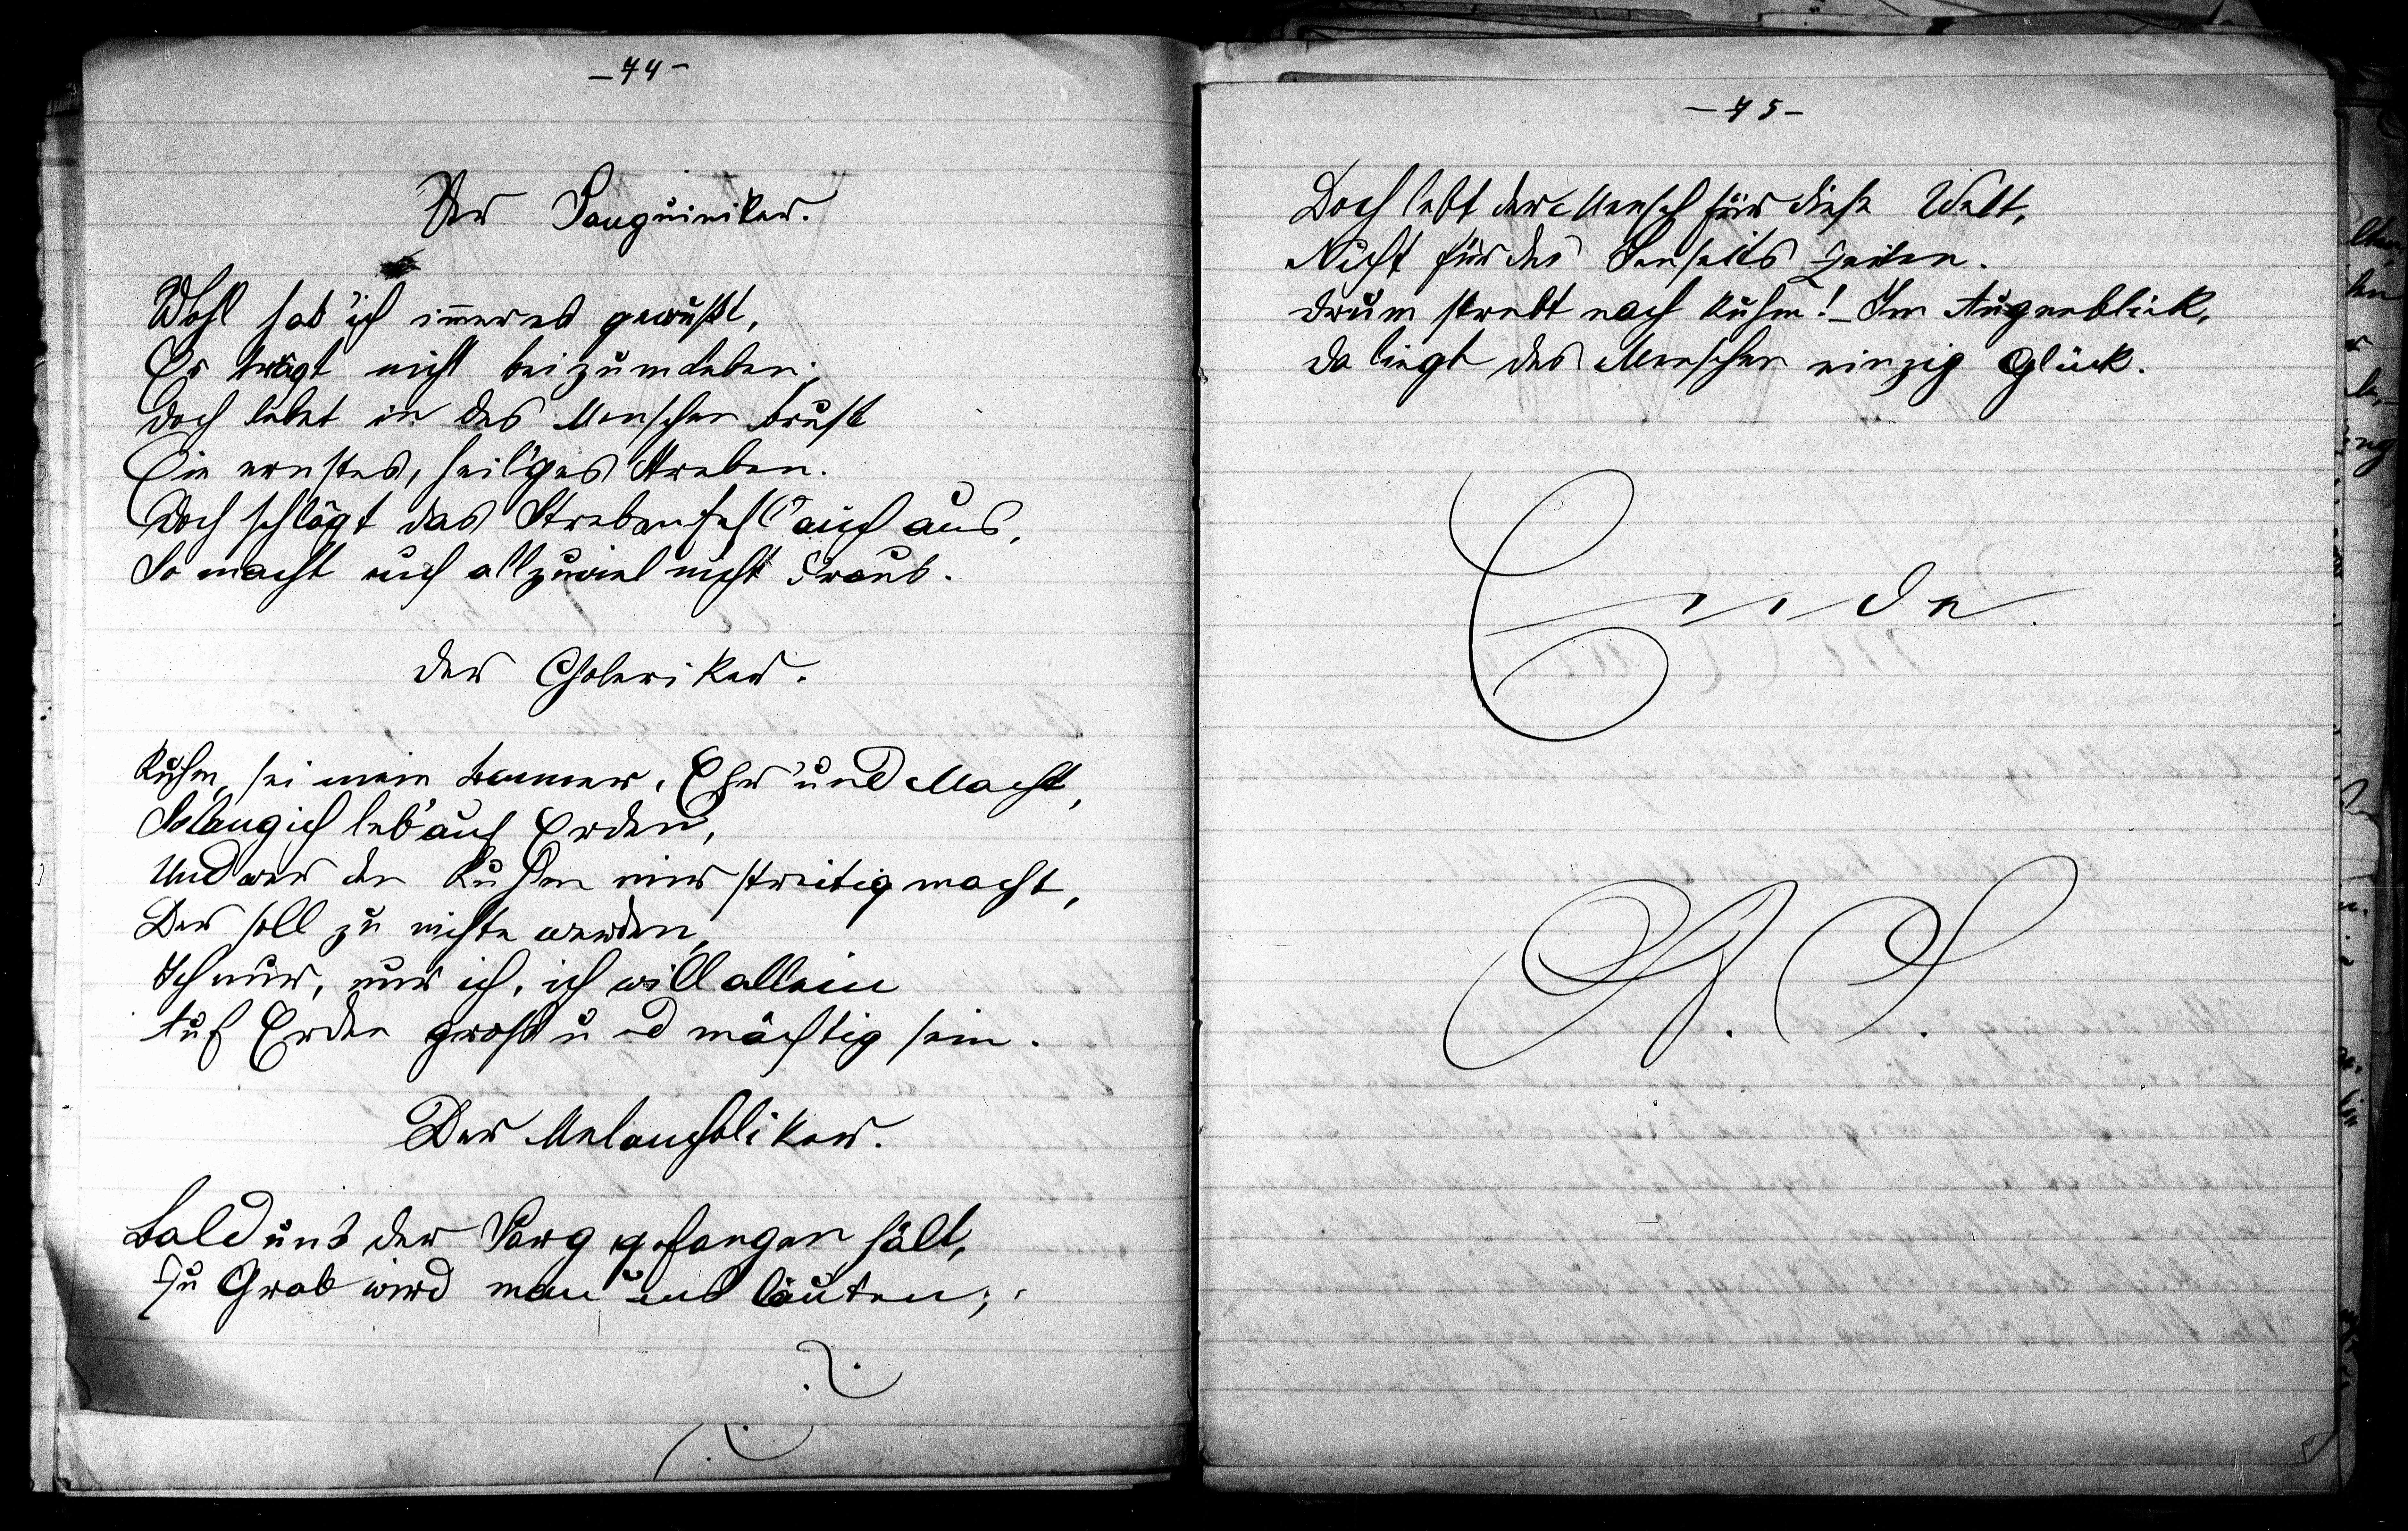 -74-
Der Sanguiniker.
Wohl hab' ich immer es gewußt,
Es trägt nicht bei zum Leben;
Doch lebet in des Menschen Brust
Ein ernstes, heil'ges Streben.
Doch schlägt das Streben fehl auch aus,
So macht mich allzuviel nicht Kraus.
Der Choleriker.
Ruhm, sei mein Banner, Ehr' und Macht,
Solang ich leb' auf Erden,
Und wer den Ruhm mir streitig macht,
Der soll zu nichte werden,
Ich nur, nur ich, ich will allein
Auf Erden groß und mächtig sein.
Der Melancholiker.
Bald uns der Sarg gefangen hält,
Zu Grab wird man uns läuten;
-75-
Doch lebt der Mensch für diese Welt,
Nicht für des Jenseits Zeiten.
Drum strebt nach Ruhm! - Im Augenblick,
Da liegt des Menschen einzig Glück.
Ende.